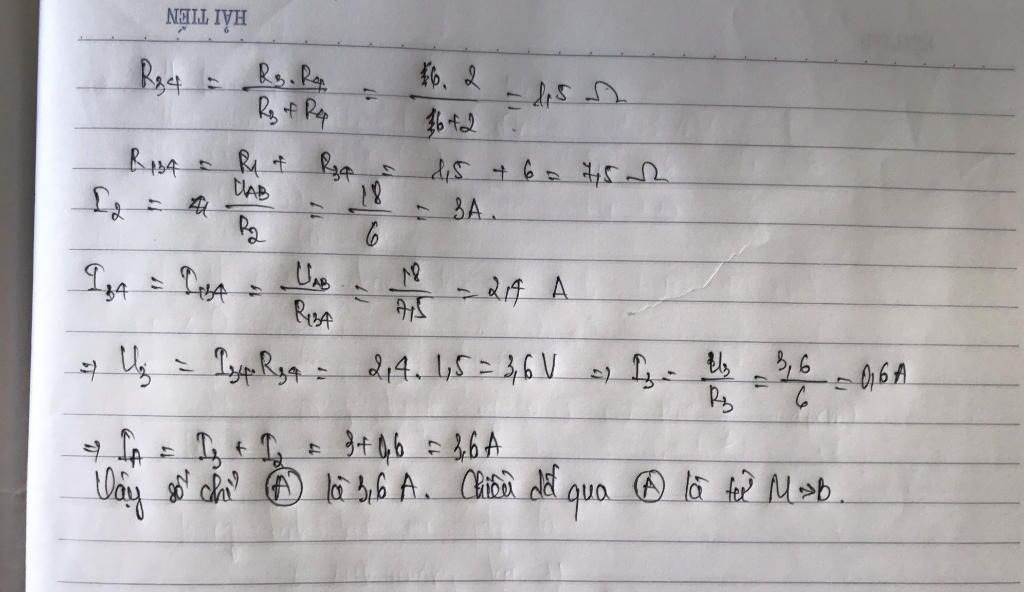 HẢI TIẾN
R34 = R3.R4 / R3 + R4 = 6.2 / 6+2 = 1,5 Ω
R134 = R1 + R34 = 1,5 + 6 = 7,5 Ω
I2 = UAB / R2 = 18 / 6 = 3A.
I34 = I134 = UAB / R134 = 18 / 7,5 = 2,4 A
=> U3 = I34.R34 = 2,4. 1,5 = 3,6 V => I3 = U3 / R3 = 3,6 / 6 = 0,6 A
=> IA = I3 + I2 = 3+0,6 = 3,6 A
Vậy số chỉ (A) là 3,6 A. Chiều dđ qua (A) là từ M->B.